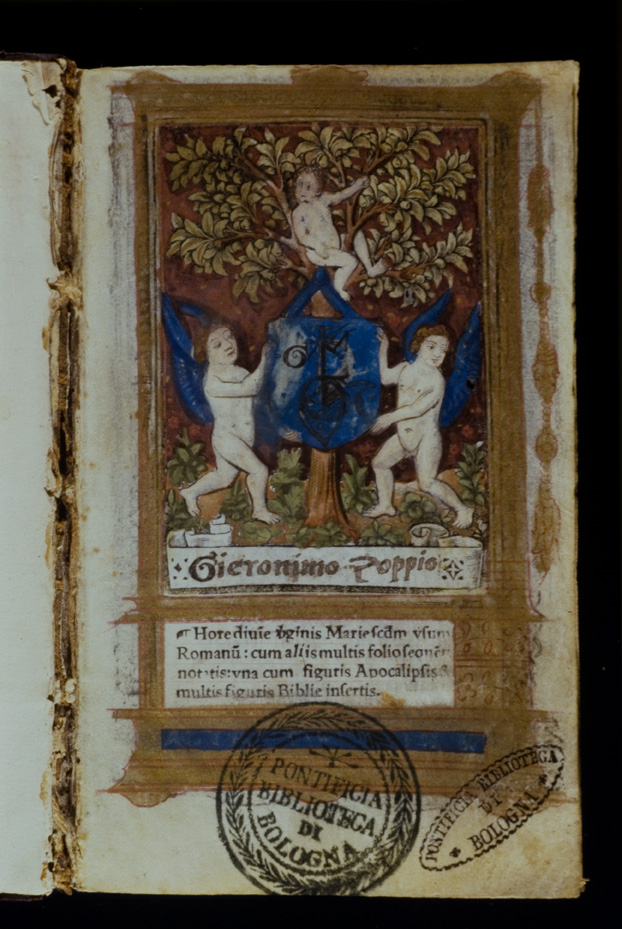 Gieronimo Poppio
¶ Hore diuīe v̄ginis Marie scd̄m vsum
Romanū : cum aliis multis folio sequēn
notatis: vna cum figuris Apocalipsis &
multis figuris Biblie insertis.
PONTIFICIA
BIBLIOTECA
DI
BOLOGNA
PONTIFICIA BIBLIOTECA
DI
BOLOGNA